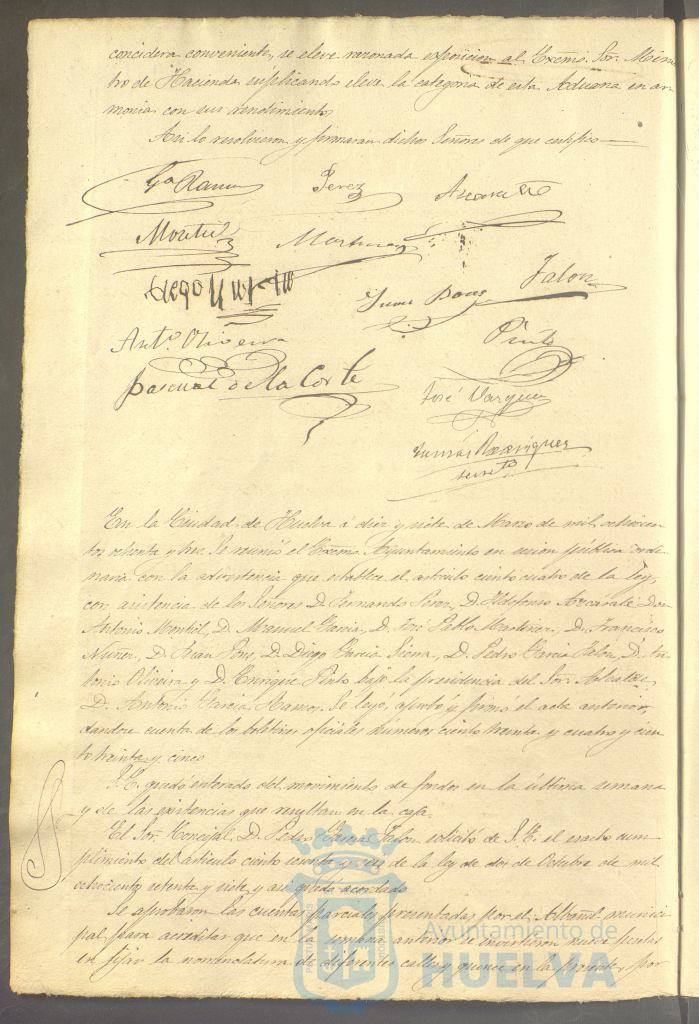 concidera conveniente, se eleve razonada exposicion al Excmo. Sor. Minis
tro de Hacienda suplicando eleve la categoria de esta Aduana en ar
monia con sus rendimientos
Asi lo resolvieron y firmaran dichos Señores de que certifico
Ga. Ramos Perez Azcarate
Montiel Martinez
Diego
Juan Pons Jalon
Anto. Oliveira Pinto
Pascual de la Corte
José Vargues
Tomás Rodriguez
secreto
En la Ciudad de Huelva á diez y siete de Marzo de mil ochocien
tos ochenta y tres. Se reunió el Excmo. Ayuntamiento en sesion pública ordi
naria con la advertencia que establece el artículo ciento cuatro de la ley,
con asistencia de los Señores D. Fernando Perez, D. Ildefonso Azcarate, Don
Antonio Montiel, D. Manuel Garcia, D. José Pablo Martinez, D. Francisco
Nuñez, D. Juan Pons, D. Diego Garcia Sierra, D. Pedro Garcia Jalon, D. An
tonio Oliveira y D. Enrique Pinto bajo la presidencia del Sor. Alcalde,
D. Antonio Garcia Ramos. Se leyó, aprobó y firmó el acta anterior,
dandose cuenta de los boletines oficiales números ciento treinta y cuatro y cien
to treinta y cinco
S. E. quedó enterado del movimiento de fondos en la última semana
y de las existencias que resultan en la caja.
El Sor. Concejal D. Pedro Garcia Jalon solicitó de S. E. el exacto cum
plimiento del artículo ciento sesenta y seis de la ley de dos de Octubre de mil
ochocientos setenta y siete, y asi quedó acordado
Se aprobaron las cuentas parciales presentadas por el Albañil munici
pal para acreditar que en la semana anterior se invirtieron nueve pesetas
en fijar la nomenclatura de diferentes calles y quince en la presente, por
Ayuntamiento de
HUELVA